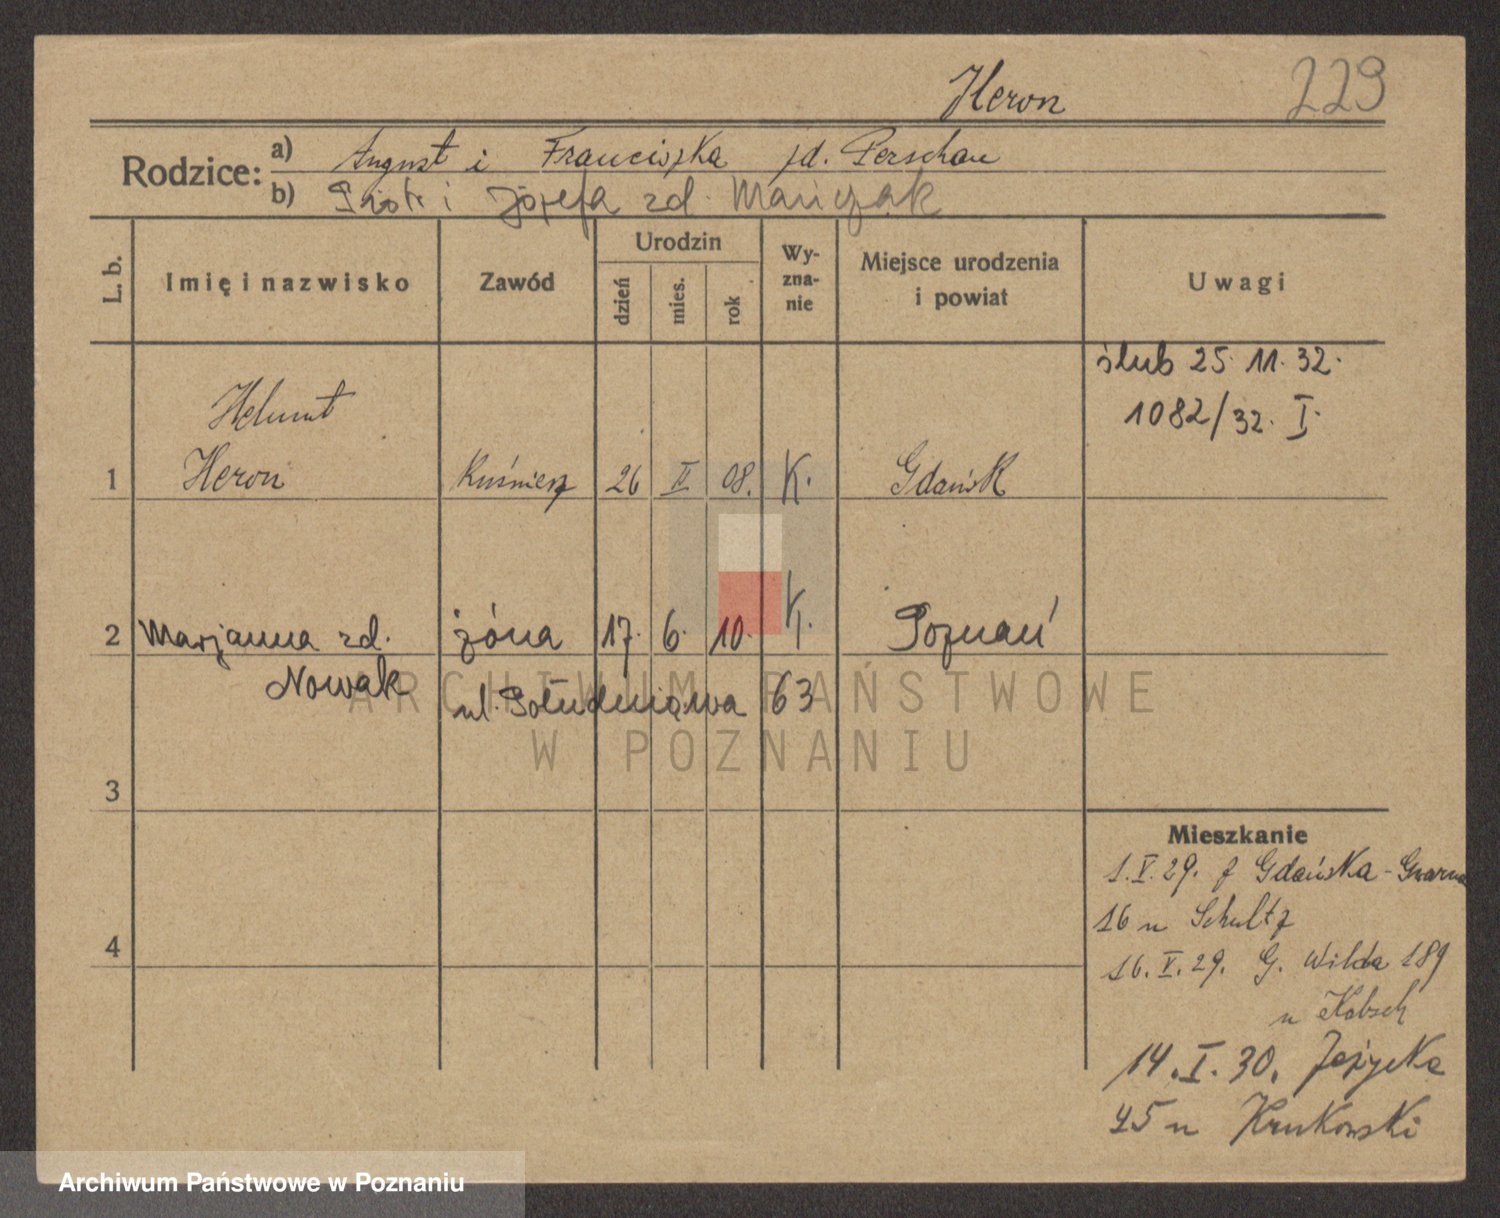 Heron 229
Rodzice: a) August i Franciszka zd. Perschau
b) Piotr i Józefa zd. Mańczak
L. b. Imię i nazwisko Zawód Urodzin dzień mies. rok Wy-zna-nie Miejsce urodzenia i powiat Uwagi
ślub 25. 11. 32.
1082/32. I.
Helmut
1 Heron Kuśnierz 26 II 08. K. Gdańsk
2 Marjanna zd. żona 17. 6. 10. K. Poznań
Nowak ul. Południowa 63
ARCHIWUM PAŃSTWOWE
W POZNANIU
3
Mieszkanie
1.V.29. z Gdańska - Gwarna
16 u Schultz
4
16.V.29. G. Wilda 189
u Kobsch
14.I.30. Jeżycka
45 u Krukowski
Archiwum Państwowe w Poznaniu